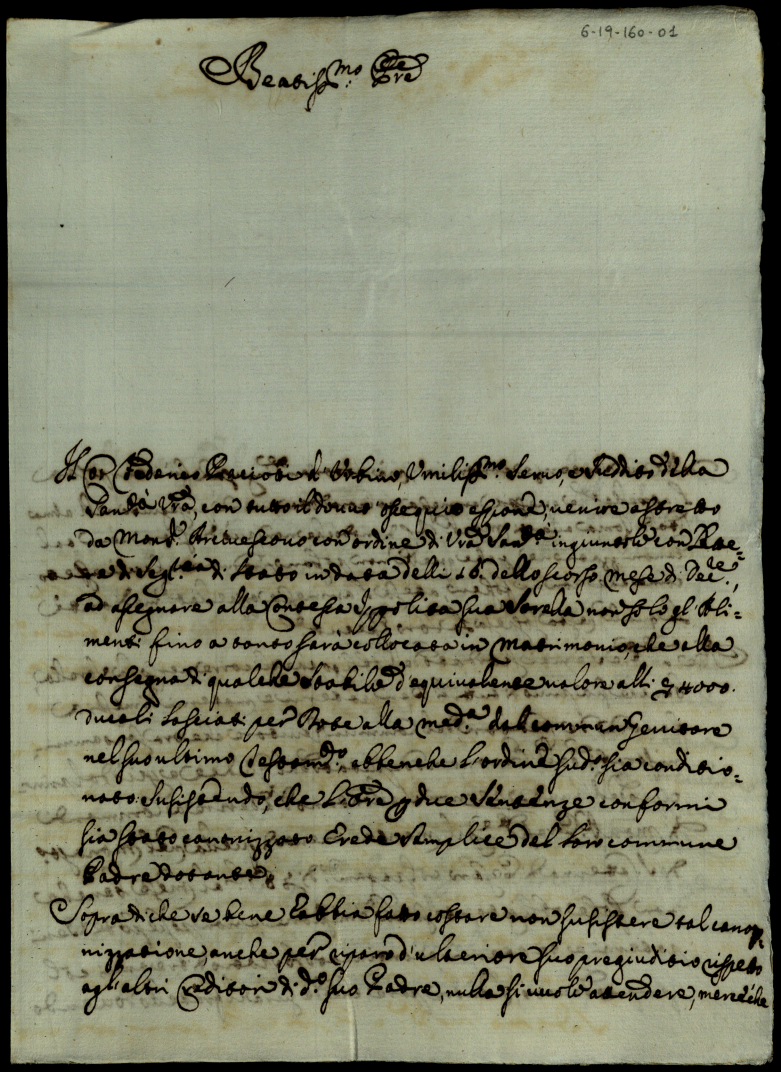 6-19-160-01
Beatiss.mo Pre
Il Co: Federico Paciotti d'Urbino, Umiliss.mo Servo, e Suddito della
Santà Vrà, con tutto il douuto ossequio espone, uenire astretto
da Mons.r Arciuescouo con ordine di Vrà San.tà ingiuntoli con Lette=
ra di Seg.ria di Stato in data delli 16. dello scorso mese di Dec.e,
ad assegnare alla Contessa Ippolita sua Sorella non solo gl'Ali=
menti fino a tanto sarà collocata in Matrimonio, che alla
consegna di qualche Stabile d'equiualente ualore alli 4000.
ducati lasciati per Dote alla med.a dal comun Genitore
nel suo ultimo Testam.to, ebbenche l'ordine sud.o sia conditio=
nato: Susistendo, che l'Ore p due Sentenze conformi
sia stato canonizzato Erede Semplice del loro commune
Padre dotante.
Sopra di che se bene l'abbia fatto costare non susistere tal cano=
nizzatione, anche per riparo d'ulteriore suo pregiuditio rispetto
agl'altri Creditori di d.o suo Padre, nulla si uuole attendere, mercè che